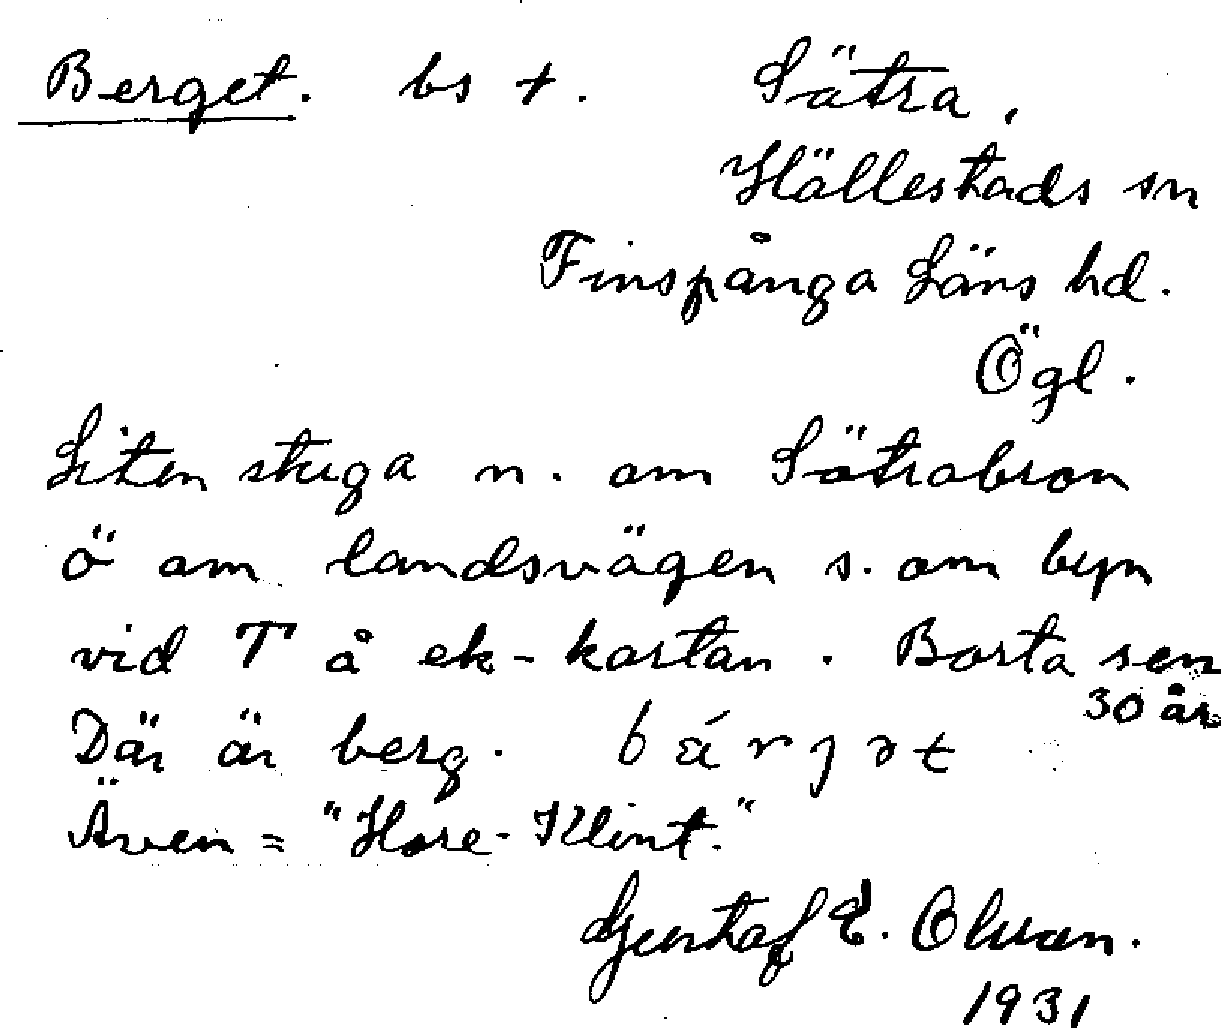 Berget. bs †. Sätra,
Hällestads sn
Finspånga Läns hd.
Ögl.
Liten stuga n. om Sätrabron
ö om landsvägen s. om byn
vid T å ek-kartan. Borta sen
30 år
Där är berg. bárjət
Även = "Hore-Klint."
Gustaf E. Olsson.
1931